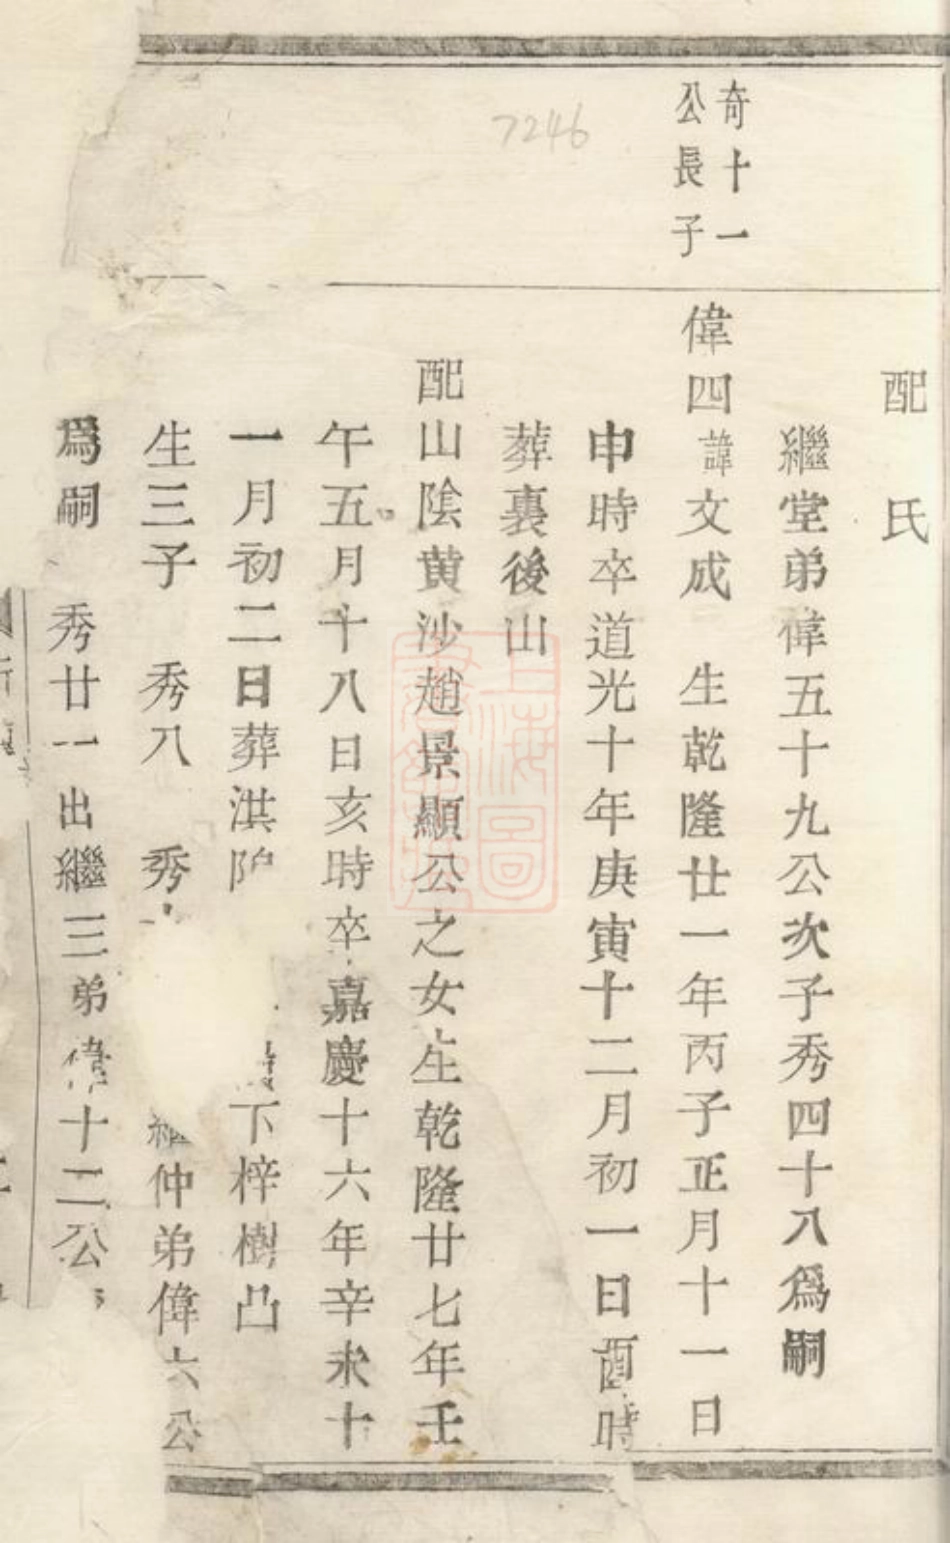 配 氏
繼堂弟偉五十九公次子秀四十八爲嗣
奇十一
公長子
偉四 諱文成 生乾隆廿一年丙子正月十一日
申時卒道光十年庚寅十二月初一日酉時
葬裏後山
配山陰黄沙趙景顯公之女生乾隆廿七年壬
午五月十八日亥時卒嘉慶十六年辛未十
一月初二日葬淇 下梓樹凸
生三子 秀八 秀 繼仲弟偉六公
爲嗣 秀廿一出繼三弟偉十二公
7246
上海圖書館藏